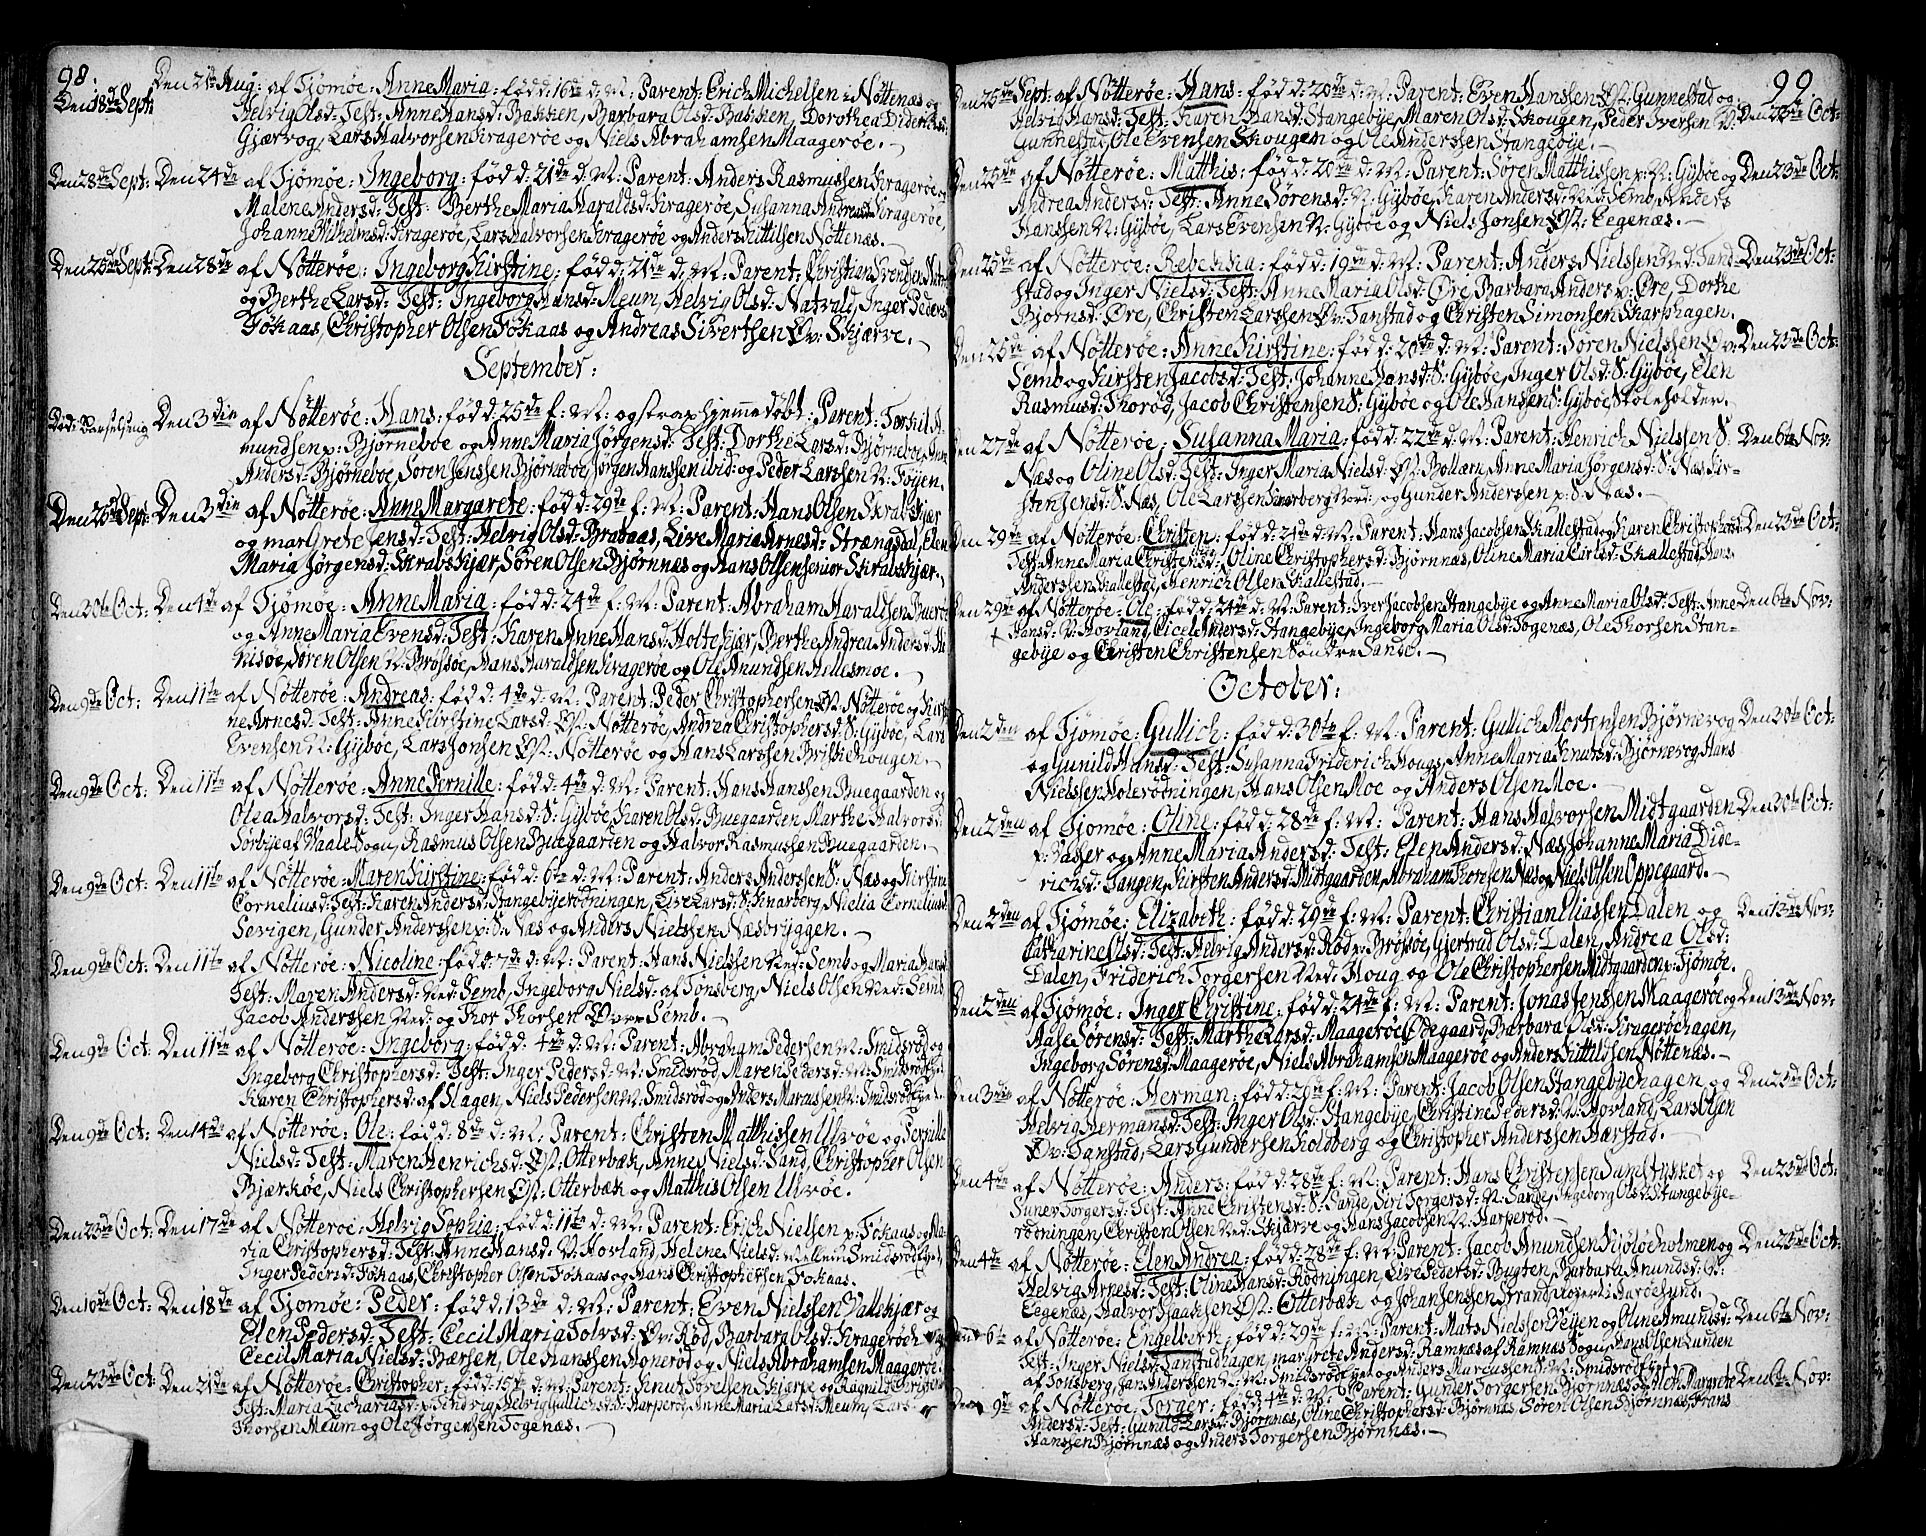 98.
Den 21de Aug: af Tjömöe: Anne Maria: föd d: 16de d: M: Parent: Erich Michelsen i Nöttenæs og
Den 18de Sept:
Helvig Olsd: Test: Anne Hansd: Bakken, Barbara Olsd: Bakken, Dorothea Diderichsd:
Gjærvog, Lars Halvorsen Kragerøe og Niels Abrahamsen Maagerøe.
Den 28de Sept: Den 24de af Tjömöe: Ingeborg: föd d: 21de d: M: Parent: Anders Rasmussen Kragerøe og
Malene Andersd: Test: Berthe Maria Haraldsd: Kragerøe, Susanna Andreasd: Kragerøe,
Johanne Wilhelmsd: Kragerøe, Lars Halvorsen Kragerøe og Anders Kittilsen Nöttenæs.
Den 25de Sept: Den 28de af Nötteröe: Ingeborg Kirstine: föd d: 21de d: M: Parent: Christian Svendsen
og Berthe Larsd: Test: Ingeborg Hansd: Meum, Helvig Olsd: Natvald, Inger Pedersd:
Fökaas, Christopher Olsen Fökaas og Andreas Sivertsen Öv: Skjærve.
September:
Död: Den 3die af Nötteröe: Hans: föd d: 25de f: M: og strax hjemme döbt: Parent: Torkil A-
mundsen p: Bjørneboe og Anne Maria Jørgensd: Test: Dorthe Larsd: Bjørneboe, Anne
Andersd: Bjørneboe, Sören Jenssen Bjørneboe, Jørgen Hanssen ibid: og Peder Larssen N: Föyen.
Den 25de Sept: Den 3die af Nötteröe: Anne Margarete: föd d: 29de f: M: Parent: Hans Olsen Skrabskjær
og Margrete Jensd: Test: Helvig Olsd: Brataas, Live Maria Arnesd: Strængsdal, Elen
Maria Jørgensd: Skrabskjær, Sören Olsen Bjørnnæs og Hans Olsen senior Skrabskjær.
Den 30te Oct: Den 4de af Tjömöe: Anne Maria: föd d: 24de f: M: Parent: Abraham Haraldsen Bueröe
og Anne Maria Evensd: Test: Karen Anne Hansd: Holtekjær, Berthe Andrea Andersd: Ha-
kisöe, Sören Olsen N: Brössöe, Hans Haraldsen Kragerøe og Ole Anundsen Hellesmoe.
Den 9de Oct: Den 11te af Nötteröe: Andreas: föd d: 4de d: M: Parent: Peder Christophersen Öst: Nötteröe og Kirsti-
ne Arnesd: Test: Anne Kirstine Larsd: Öst: Nötteröe, Andrea Christophersd: S: Gyböe, Lars
Evensen N: Gyböe, Lars Jonsen Öst: Nötteröe og Hans Larssen Briskeskougen.
Den 9de Oct: Den 11te af Nötteröe: Anne Pernille: föd d: 4de d: M: Parent: Hans Hanssen Buegaarden og
Olea Halvorsd: Test: Inger Hansd: S: Gyböe, Karen Olsd: Buegaarden, Marthe Halvorsd:
Sörbye af Vaale Sogn, Rasmus Olsen Buegaarden og Halvor Rasmussen Buegaarden.
Den 9de Oct: Den 11te af Nötteröe: Maren Kirstine: föd d: 6te d: M: Parent: Anders Anderssen S: Næs og Kirstine
Corneliusd: Test: Karen Andersd: Stangebyerödningen, Live Larsd: S: Knarberg, Nielia Corneliusd:
Sevigen, Gunder Anderssen p: S: Næs og Anders Nielssen Næsbryggen.
Den 9de Oct: Den 11te af Nötteröe: Nicoline: föd d: 7de d: M: Parent: Hans Nielssen Ned: Semb og Maria Hansd:
Test: Maren Andersd: Ned: Semb, Ingeborg Nielsd: af Tönsberg, Niels Olsen Ned: Semb
Jacob Anderssen Ned: og Thor Thorsen Övre Semb.
Den 9de Oct: Den 11te af Nötteröe: Ingeborg: föd d: 4de d: M: Parent: Abraham Pedersen N: Smidsröd og
Ingeborg Christophersd: Test: Inger Pedersd: N: Smidsröd, Maren Pedersd: N: Smidsröd
Karen Christophersd: af Slagen, Niels Pedersen N: Smidsröd og Anders Marcussen N: Smidsröd
Den 9de Oct: Den 14de af Nötteröe: Ole: föd d: 8de d: M: Parent: Christen Matthissen Ulvöe og Pernille
Nielsd: Test: Maren Henrichsd: Öst: Otterbæk, Anne Nielsd: Sand, Christopher Olsen
Bjærköe, Niels Christophersen Öst: Otterbæk og Matthis Olsen Ulvöe.
Den 23de Oct: Den 17de af Nötteröe: Helvig Sophia: föd d: 11te d: M: Parent: Erich Nielsen p: Fökaas og Ma-
ria Christophersd: Test: Anne Hansd: N: Hovland, Helene Nielsd: Mellem Smidsröd
Inger Pedersd: Fökaas, Christopher Olsen Fökaas og Hans Christophersen Fokaas.
Den 10de Oct: Den 18de af Tjömöe: Peder: föd d: 13de d: M: Parent: Even Nielssen Vallekjær og
Elen Pedersd: Test: Cecil Maria Tolvsd: Öv: Röd, Barbara Olsd: Kragerøe
Cecil Maria Nielsd: Bærsen, Ole Hanssen Honeröd og Niels Abrahamsen Maagerøe.
Den 23de Oct: Den 21de af Nötteröe: Christopher: föd d: 15de d: M: Parent: Knut Sörelsen Skjærpe og Ragnild Christensd:
Test: Maria Zachariasd: p: Tindvig, Helvig Gullichsd: S: Harperöd, Anne Maria Larsd: Meum, Lars
Thorsen Meum og Ole Jørgensen Togenæs.
99.
Den 25de Sept: af Nötteröe: Hans: föd d: 20de d: M: Parent: Even Hanssen Öst: Gunnestad og Den 23de Oct:
Helvig Hansd: Test: Karen Hansd: Stangebye, Maren Olsd: Skougen, Peder Iversen N:
Gunnestad, Ole Evensen Skougen og Ole Anderssen Stangebye.
Den 25de af Nötteröe: Matthis: föd d: 20de d: M: Parent: Sören Matthissen p: N: Gyböe og Den 23de Oct:
Andrea Andersd: Test: Anne Sörensd: N: Gyböe, Karen Andersd: Ned: Semb, Anders
Hanssen N: Gyböe, Lars Evensen N: Gyböe og Niels Jonsen Öst: Eegenæs.
Den 25de af Nötteröe: Rebekka: föd d: 19de d: M: Parent: Anders Nielssen Ned: Tand- Den 23de Oct:
stad og Inger Nielsd: Test: Anne Maria Olsd: Öre, Barbara Andersd: Öre, Dorthe
Bjørnsd: Öre, Christen Larssen Öv: Tanstad og Christen Simonsen Skarphagen.
Den 25de af Nötteröe: Anne Kirstine: föd d: 20de d: M: Parent: Sören Nielssen Öv: Den 23de Oct:
Semb og Kirsten Jacobsd: Test: Johanne Hansd: S: Gyböe, Inger Olsd: S: Gyböe, Elen
Rasmusd: Thoröd, Jacob Christensen S: Gyböe og Ole Hansen S: Gyböe, Stoleholder.
Den 27de af Nötteröe: Susanna Maria: föd d: 22de d: M: Parent: Henrich Nielssen S: Den 6te Nov:
Næs og Oline Olsd: Test: Inger Maria Nielsd: Öst: Bollærn, Anne Maria Jørgensd: S: Næs, Kir-
sten Jensd: S: Næs, Ole Larssen Knarberg Nord: og Gunder Anderssen p: S: Næs.
Den 29de af Nötteröe: Christen: föd d: 21de d: M: Parent: Hans Jacobsen Skallestad og Karen Christophersd: Den 23de Oct:
Test: Anne Maria Christensd: Oline Christophersd: Bjørnnæs, Oline Maria Carlsd: Skallestad, Hans
Anderssen Skallestad, Henrich Olsen Skallestad.
Den 29de af Nötteröe: Ole: föd d: 24de d: M: Parent: Iver Jacobsen Stangebye og Anne Maria Olsd: Test: Anne Den 6te Nov:
Hansd: N: Hovland, Cicel Andersd: Stangebye, Ingeborg Maria Olsd: Togenæs, Ole Thorsen Stan-
gebye og Christen Christensen Söndre Sande.
October:
Den 2den af Tjömöe: Gullich: föd d: 30te f: M: Parent: Gullich Mortensen Bjørnevog Den 30te Oct:
og Gunild Hansd: Test: Susanna Friderich Hougs, Anne Maria Knutsd: Bjørnevog, Hans
Nielssen Holerödningen, Hans Olsen Moe og Anders Olsen Moe.
Den 2den af Tjömöe: Oline: föd d: 28de f: M: Parent: Hans Halvorsen Midtgaarden Den 30te Oct:
p: Vasser og Anne Maria Andersd: Test: Elen Andersd: Næs, Johanne Maria Dide-
richsd: Tangen, Kirsten Andersd: Midtgaarden, Abraham Thoresen Næs og Niels Olsen Oppegaard.
Den 2den af Tjömöe: Elizabeth: föd d: 29de f: M: Parent: Christian Eliassen Dalen og Den 13de Nov:
Catharine Olsd: Test: Helvig Andersd: Röd p: Brössöe, Gjertrud Olsd: Dalen, Andrea Olsd:
Dalen, Friderich Torgersen Ned: Houg og Ole Christophersen Midtgaarden p: Tjömöe.
Den 2den af Tjömöe: Inger Christine: föd d: 24de f: M: Parent: Jonas Jenssen Maagerøe og Den 13de Nov:
Aase Sörensd: Test: Marthe Larsd: Maagerøe Ödegaard, Barbara Olsd: Kragerøehagen,
Ingeborg Sörensd: Maagerøe, Niels Abrahamsen Maagerøe og Anders Kittilsen Nöttenæs.
Den 3die af Nötteröe: Herman: föd d: 26de f: M: Parent: Jacob Olsen Stangebyehagen og Den 23de Oct:
Helvig Hermansd: Test: Inger Olsd: Stangebye, Christine Pedersd: N: Hovland, Lars Olsen
Öv: Tanstad, Lars Gundersen Holdberg og Christopher Anderssen Hærstad.
Den 4de af Nötteröe: Anders: föd d: 28de f: M: Parent: Hans Christensen Sundstykket og Den 23de Oct:
Sunev Torgersd: Test: Anne Christensd: S: Sande, Siri Torgersd: N: Sande, Ingeborg Olsd: Stangebye-
rödningen, Christen Olsen Ned: Skjærve og Hans Jacobsen N: Harperöd.
Den 4de af Nötteröe: Elen Andrea: föd d: 28de f: M: Parent: Jacob Anundsen Kjöleholmen og Den 23de Oct:
Helvig Arnesd: Test: Oline Hansd: Rödningen, Live Pedersd: Bugten, Barbara Anundsd: V:
Eegenæs, Halvor Isaaksen Öst: Otterbæk og Johan Jenssen Strandskoven i Aaröesund.
Den 6te af Nötteröe: Engelberth: föd d: 29de f: M: Parent: Mats Nielssen Veyen og Oline Amundsd: Den 6te Nov:
Test: Inger Nielsd: Tanstadhagen, Margrete Andersd: Ramnæs af Ramnæs Sogn, Hans Olsen Lunden
af Tönsberg, Jan Anderssen N: Smidsröd og Anders Marcussen N: Smidsröd
Den 9de af Nötteröe: Torger: föd d: 4de d: M: Parent: Gunder Torgersen Bjørnnæs og Margrete Den 6te Nov:
Andersd: Test: Gunild Larsd: Bjørnnæs, Oline Christophersd: Bjørnnæs, Sören Olsen Bjørnnæs, Frans
Hanssen Bjørnnæs og Anders Torgersen Bjørnnæs.